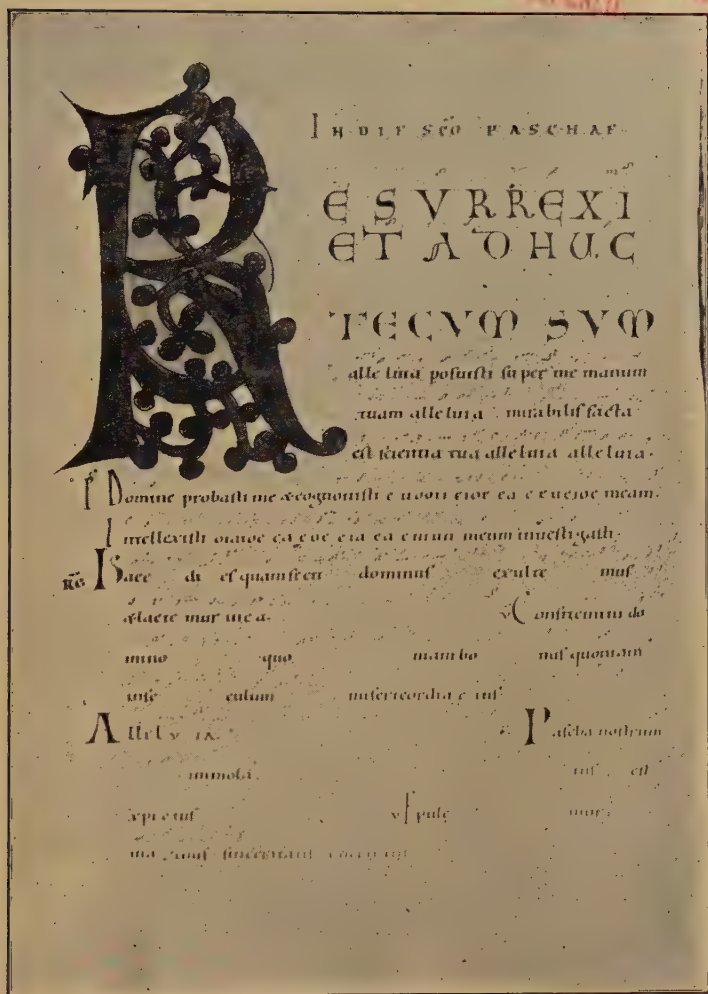 IN DIE SCO PASCHAE
RESVRREXI
ET ADHUC
TECVM SVM
alleluia posuisti super me manum
tuam alleluia mirabilis facta
est scientia tua alleluia alleluia.
Domine probasti me & cognouisti e meam.
Intellexisti meum inuestigasti
RG haec di es quam fecit dominus exulte mus
& laete mur in ea. V Confitemini do
mino quo niam bo nus quoniam
in se culum misericordia e ius
Allelu ia. Pascha nostrum
immola tus est
xpi c tus V Epule mur